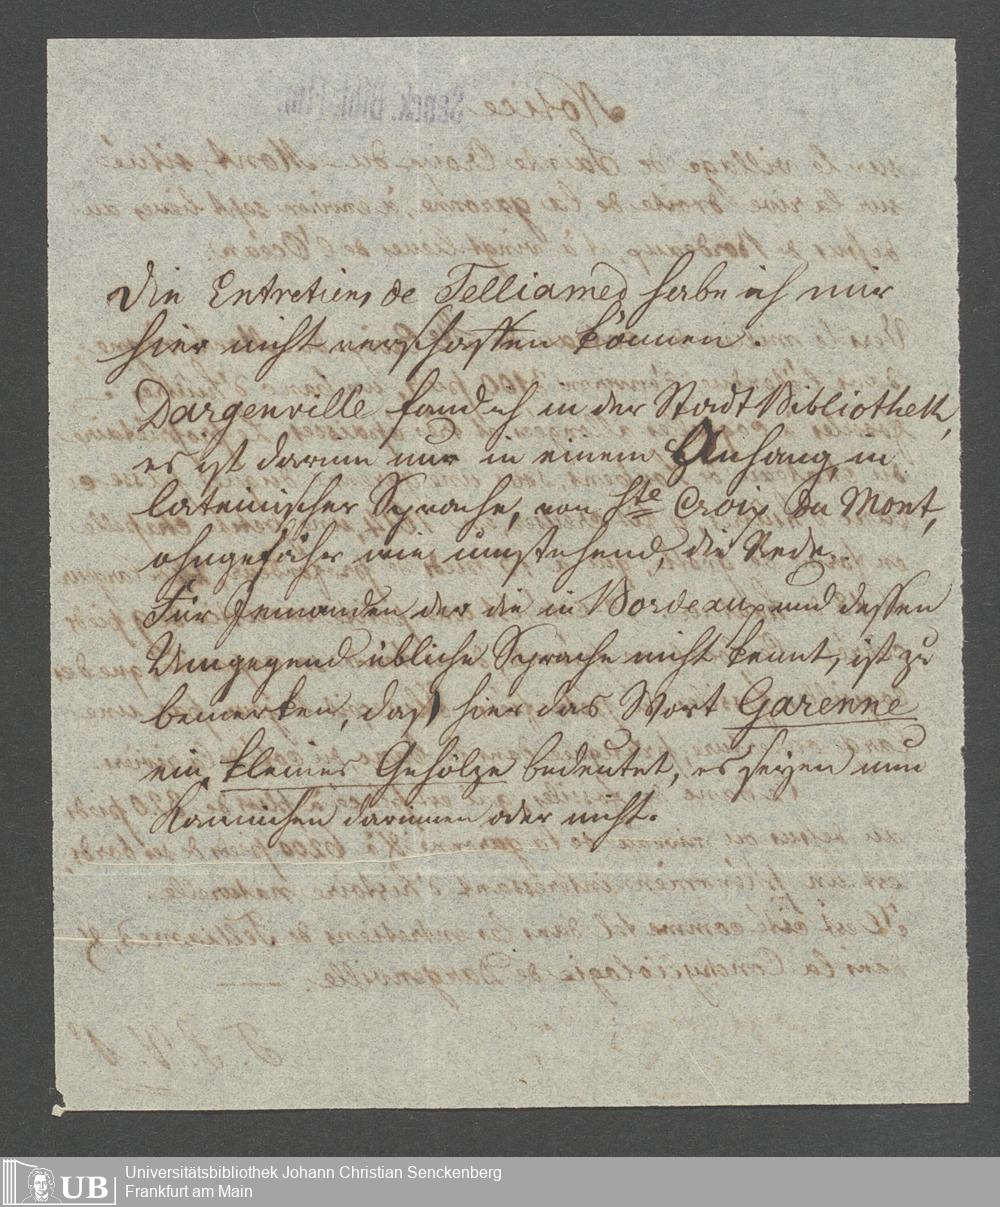 Die Entretiens de Telliamed habe ich mir
hier nicht verschaffen können.
Dargenville fand ich in der Stadt Bibliothek,
es ist darin nur in einem Anhang, in
lateinischer Sprache, von Ste Croix du Mont,
ohngefähr wie umstehend, die Rede.
Für Jemanden der die in Bordeaux und dessen
Umgegend übliche Sprache nicht kennt, ist zu
bemerken, daß hier das Wort Garenne
ein kleines Gehölze bedeutet, es seyen nun
Kaninchen darinnen oder nicht.
UB
Universitätsbibliothek Johann Christian Senckenberg
Frankfurt am Main